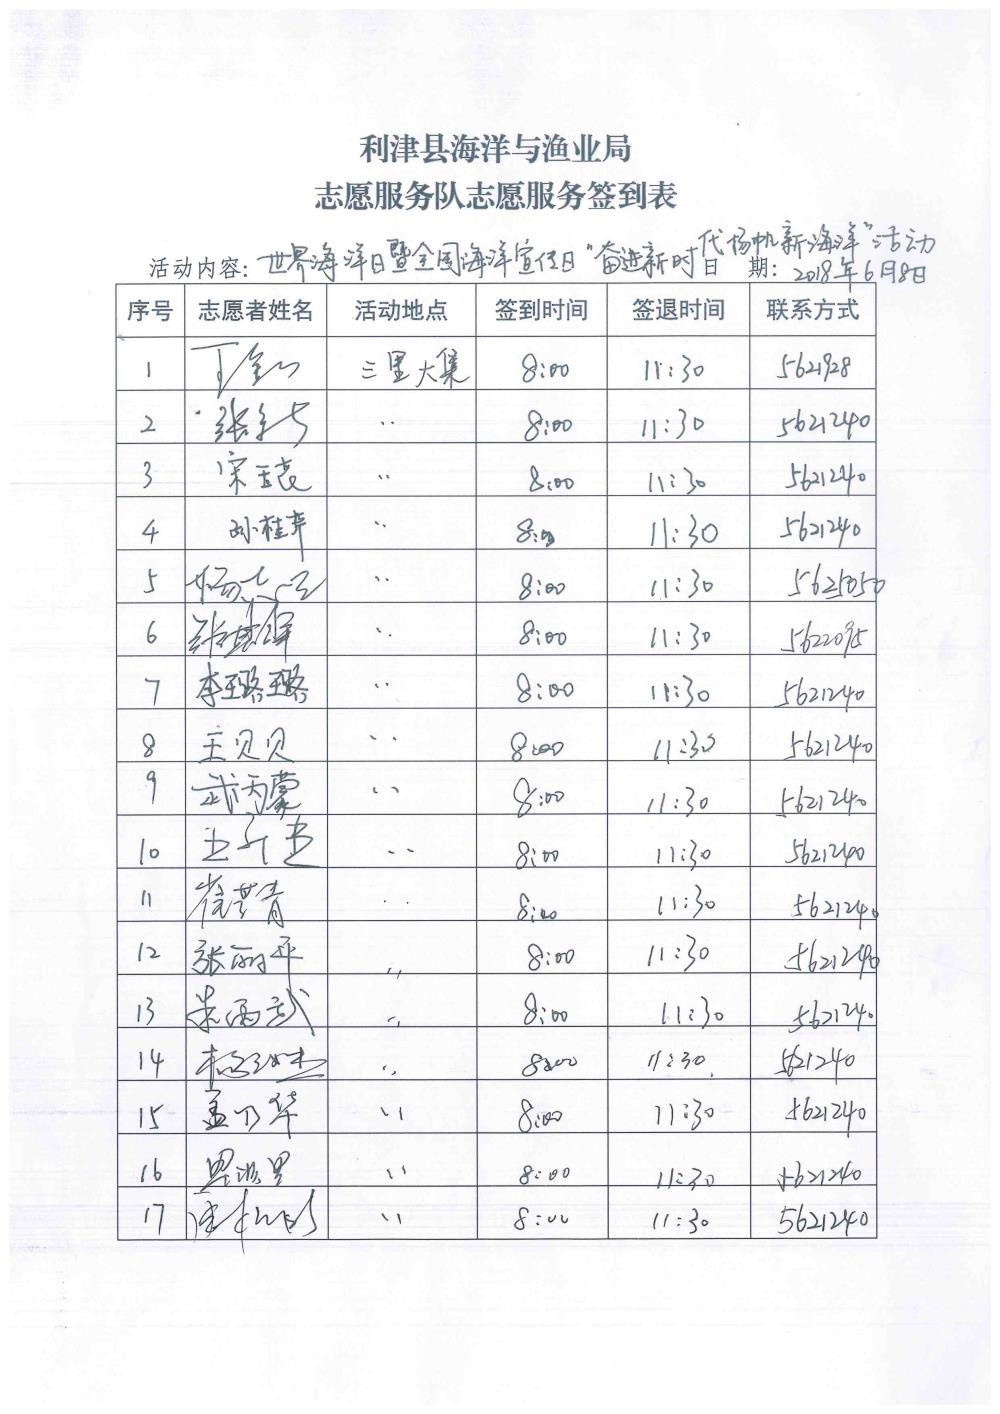 利津县海洋与渔业局
志愿服务队志愿服务签到表
活动内容：世界海洋日暨全国海洋宣传日“奋进新时代扬帆新海洋”活动
日 期：2018年6月8日
序号 志愿者姓名 活动地点 签到时间 签退时间 联系方式
1 三里大集 8:00 11:30 5621928
2 〃 8:00 11:30 5621240
3 〃 8:00 11:30 5621240
4 孙桂华 〃 8:00 11:30 5621240
5 〃 8:00 11:30 5625050
6 〃 8:00 11:30 5622095
7 李璐璐 〃 8:00 11:30 5621240
8 王贝贝 〃 8:00 11:30 5621240
9 武丙蒙 〃 8:00 11:30 5621240
10 〃 8:00 11:30 5621240
11 〃 8:00 11:30 5621240
12 张丽平 〃 8:00 11:30 5621240
13 〃 8:00 11:30 5621240
14 〃 8:00 11:30 5621240
15 孟乃华 〃 8:00 11:30 5621240
16 〃 8:00 11:30 5621240
17 〃 8:00 11:30 5621240